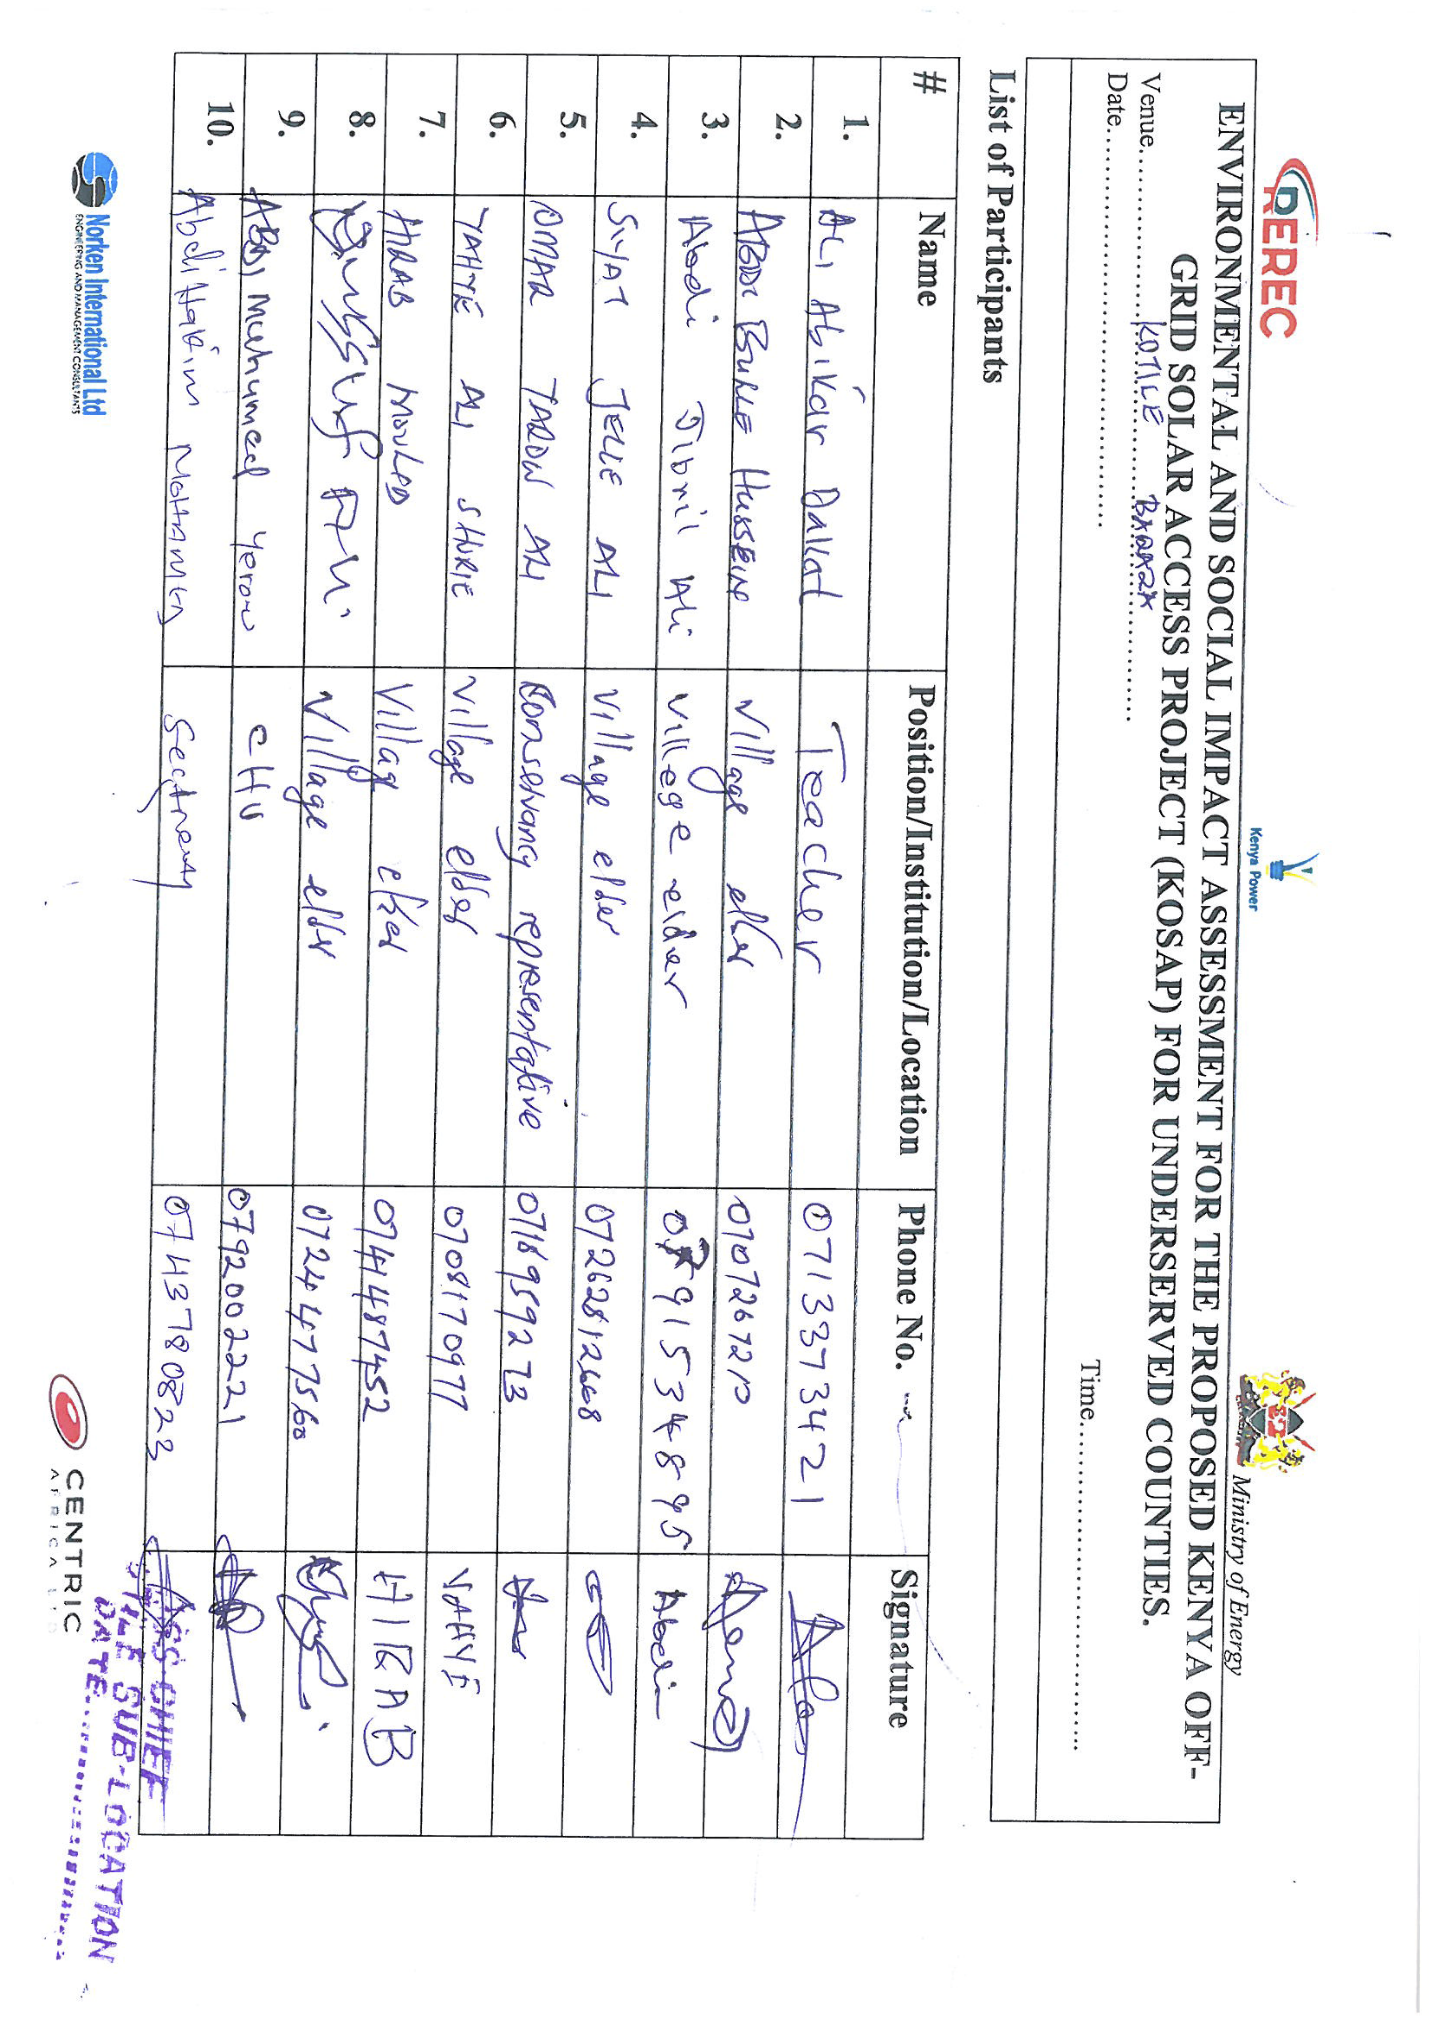 REREC
Kenya Power
Ministry of Energy
ENVIRONMENTAL AND SOCIAL IMPACT ASSESSMENT FOR THE PROPOSED KENYA OFF-
GRID SOLAR ACCESS PROJECT (KOSAP) FOR UNDERSERVED COUNTIES.
Venue.................KOTILE BARAZA.................
Date.................................................. Time..................................................
List of Participants
# Name Position/Institution/Location Phone No. Signature
1. ALI Abikar Dallal Teacher 0713373421
2. ABDI BURLE HUSSEIN Village elder 0707267210
3. Abdi Jibril Ali Villege elder Abdi
4. SIYAT JELLE ALI Village elder 0726281268
5. OMAR TAROW ALI Conservancy representative 0716959273
6. YAHYE ALI SHURIE Village elder 0708170977 YAHYE
7. HIRAB MOULED Village elder 0744487452 HIRAB
8. Village elder 0724477560
9. ABDI Muhumed Yerow CHV 0792002221
10. Abdi Hakim MOHAMED 0743780823
ASS CHIEF
SUB-LOCATION
DATE..................
Norken International Ltd
ENGINEERING AND MANAGEMENT CONSULTANTS
CENTRIC
AFRICA LTD